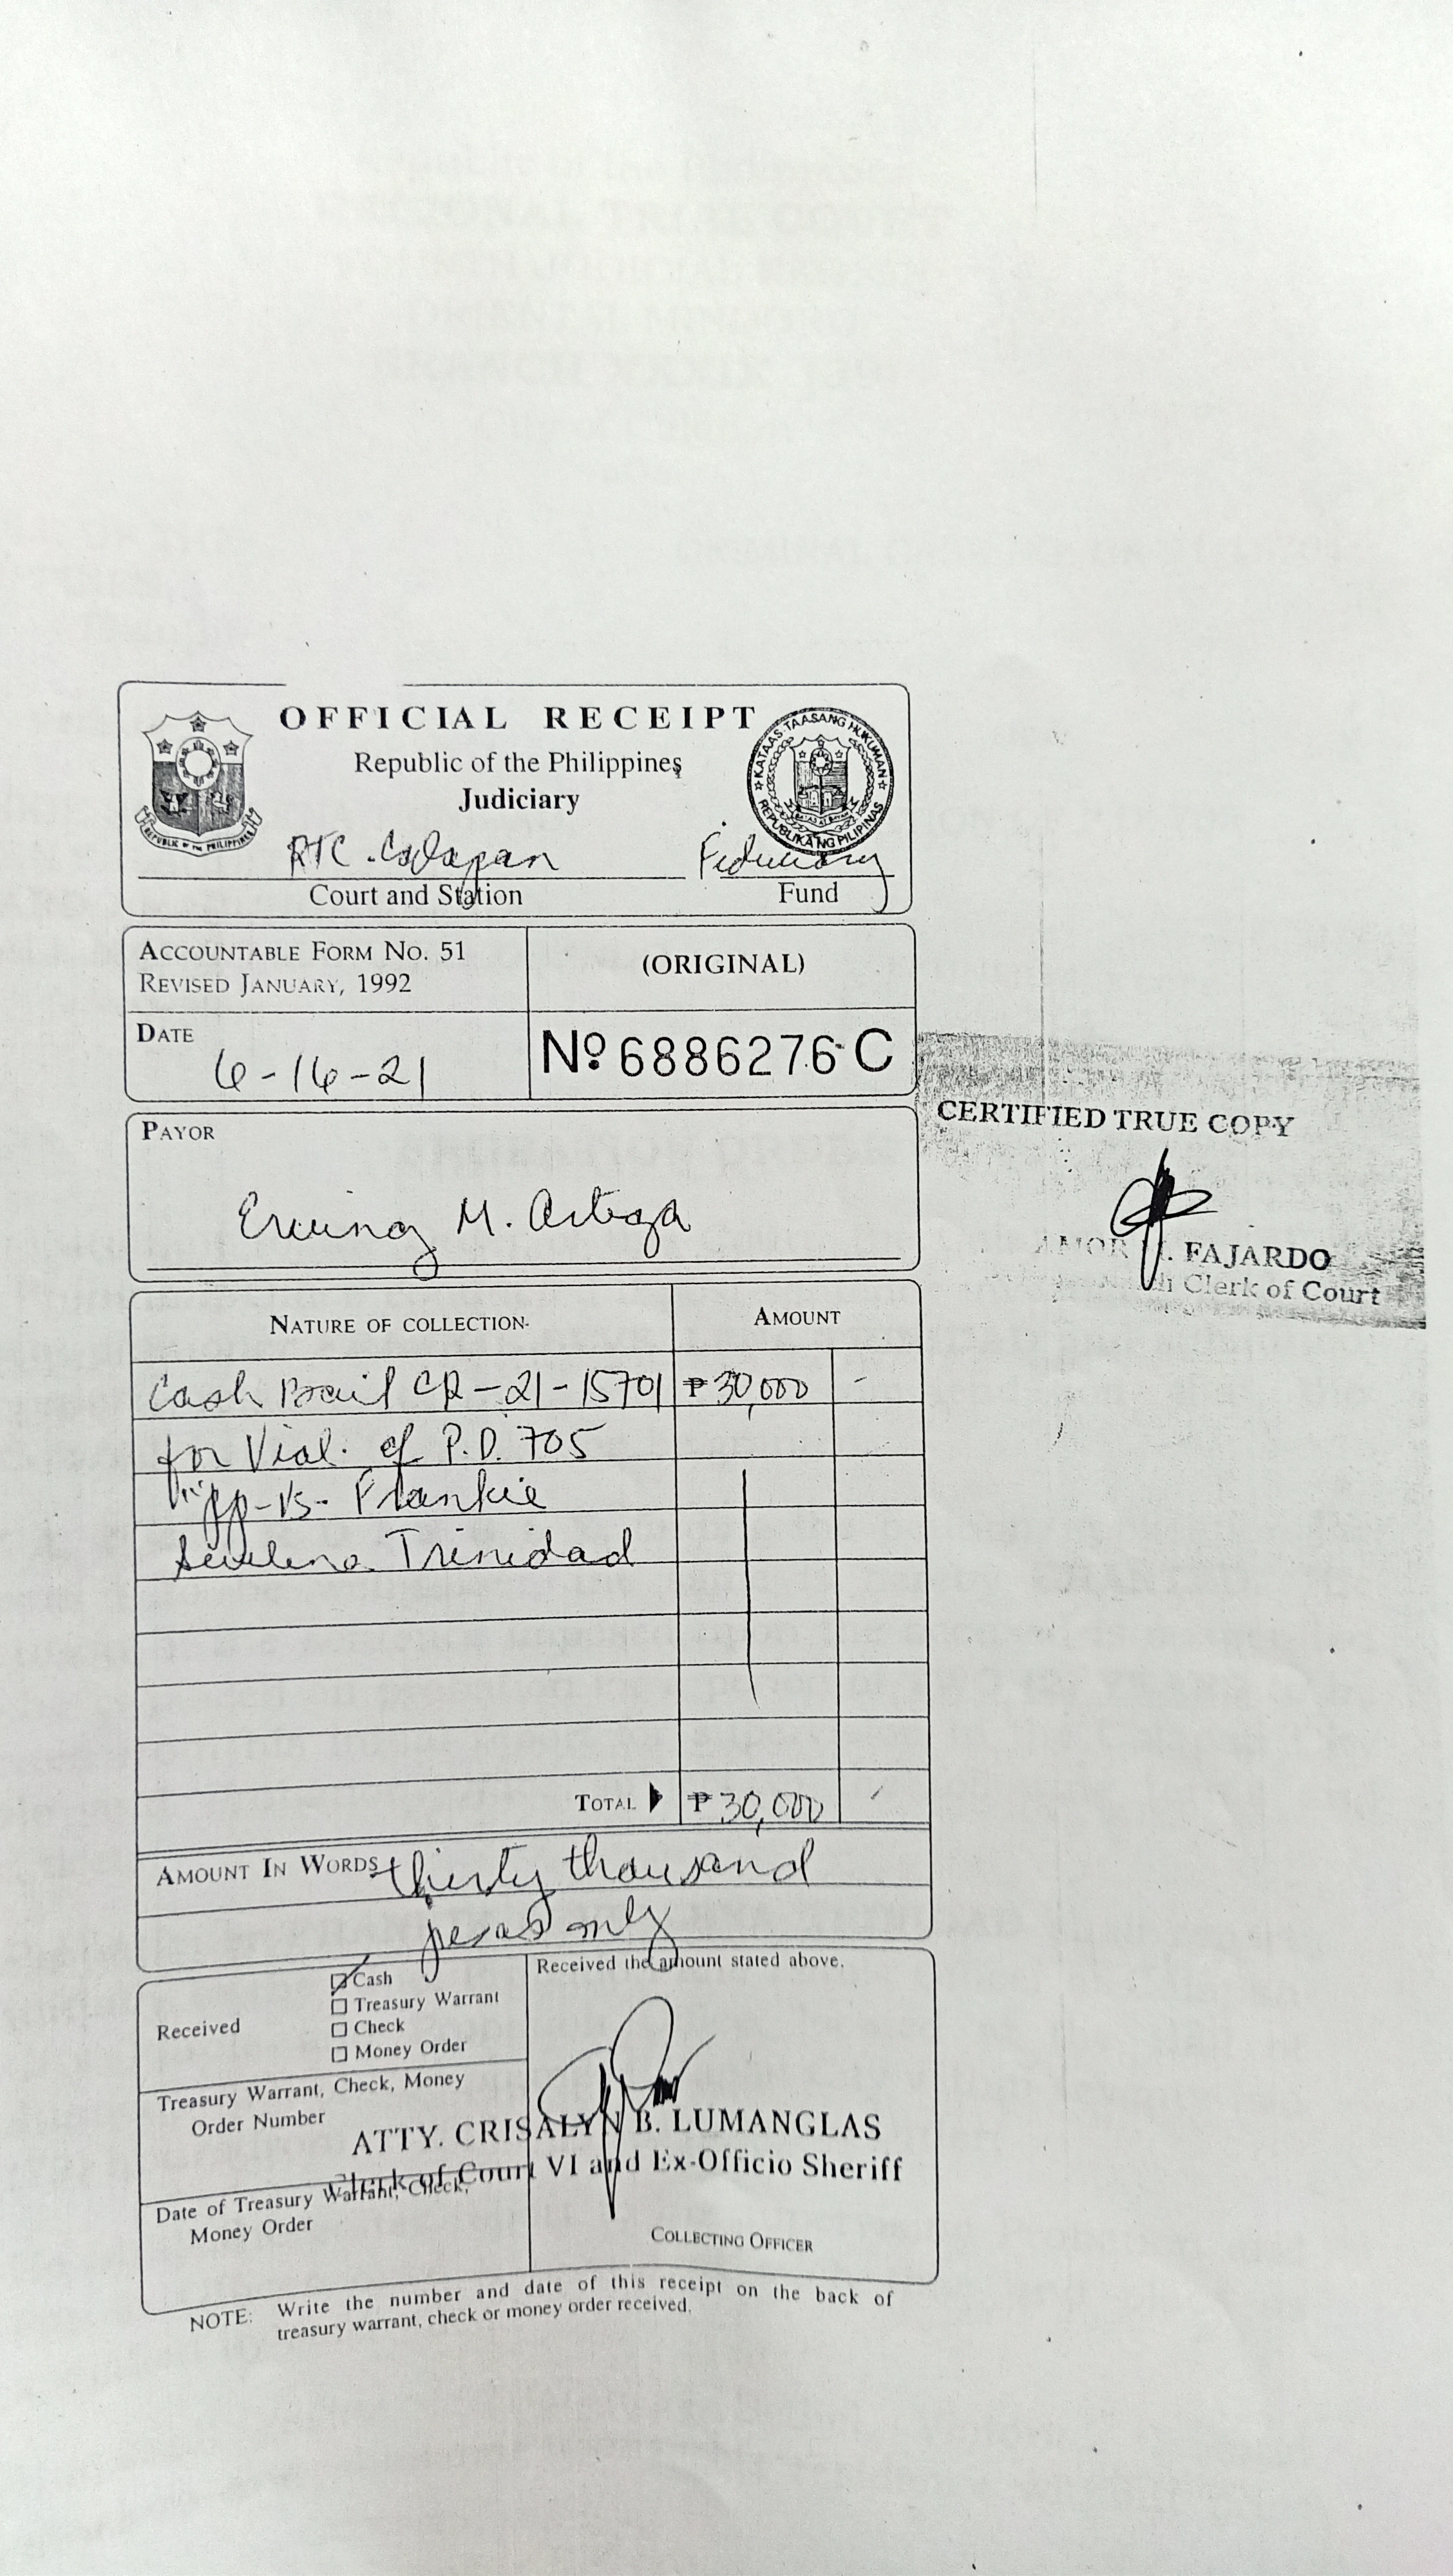 OFFICIAL RECEIPT
Republic of the Philippines
Judiciary
KATAAS-TAASANG HUKUMAN
REPUBLIKA NG PILIPINAS
REPUBLIC OF THE PHILIPPINES
RTC. Calapan
Fiduciary
Court and Station
Fund
ACCOUNTABLE FORM NO. 51
REVISED JANUARY, 1992
(ORIGINAL)
DATE
6-16-21
Nº 6886276 C
CERTIFIED TRUE COPY
FAJARDO
Clerk of Court
PAYOR
Erwing M. Arteza
NATURE OF COLLECTION
AMOUNT
Cash Bail CR-21-15701 ₱30,000 -
for Viol. of P.D. 705
"pp-vs- Frankie
Trinidad
TOTAL ₱30,000
AMOUNT IN WORDS thirty thousand
pesos only
Received
Cash
Treasury Warrant
Check
Money Order
Received the amount stated above.
Treasury Warrant, Check, Money
Order Number
ATTY. CRISALYN B. LUMANGLAS
Clerk of Court VI and Ex-Officio Sheriff
Date of Treasury Warrant, Check,
Money Order
COLLECTING OFFICER
NOTE: Write the number and date of this receipt on the back of
treasury warrant, check or money order received.